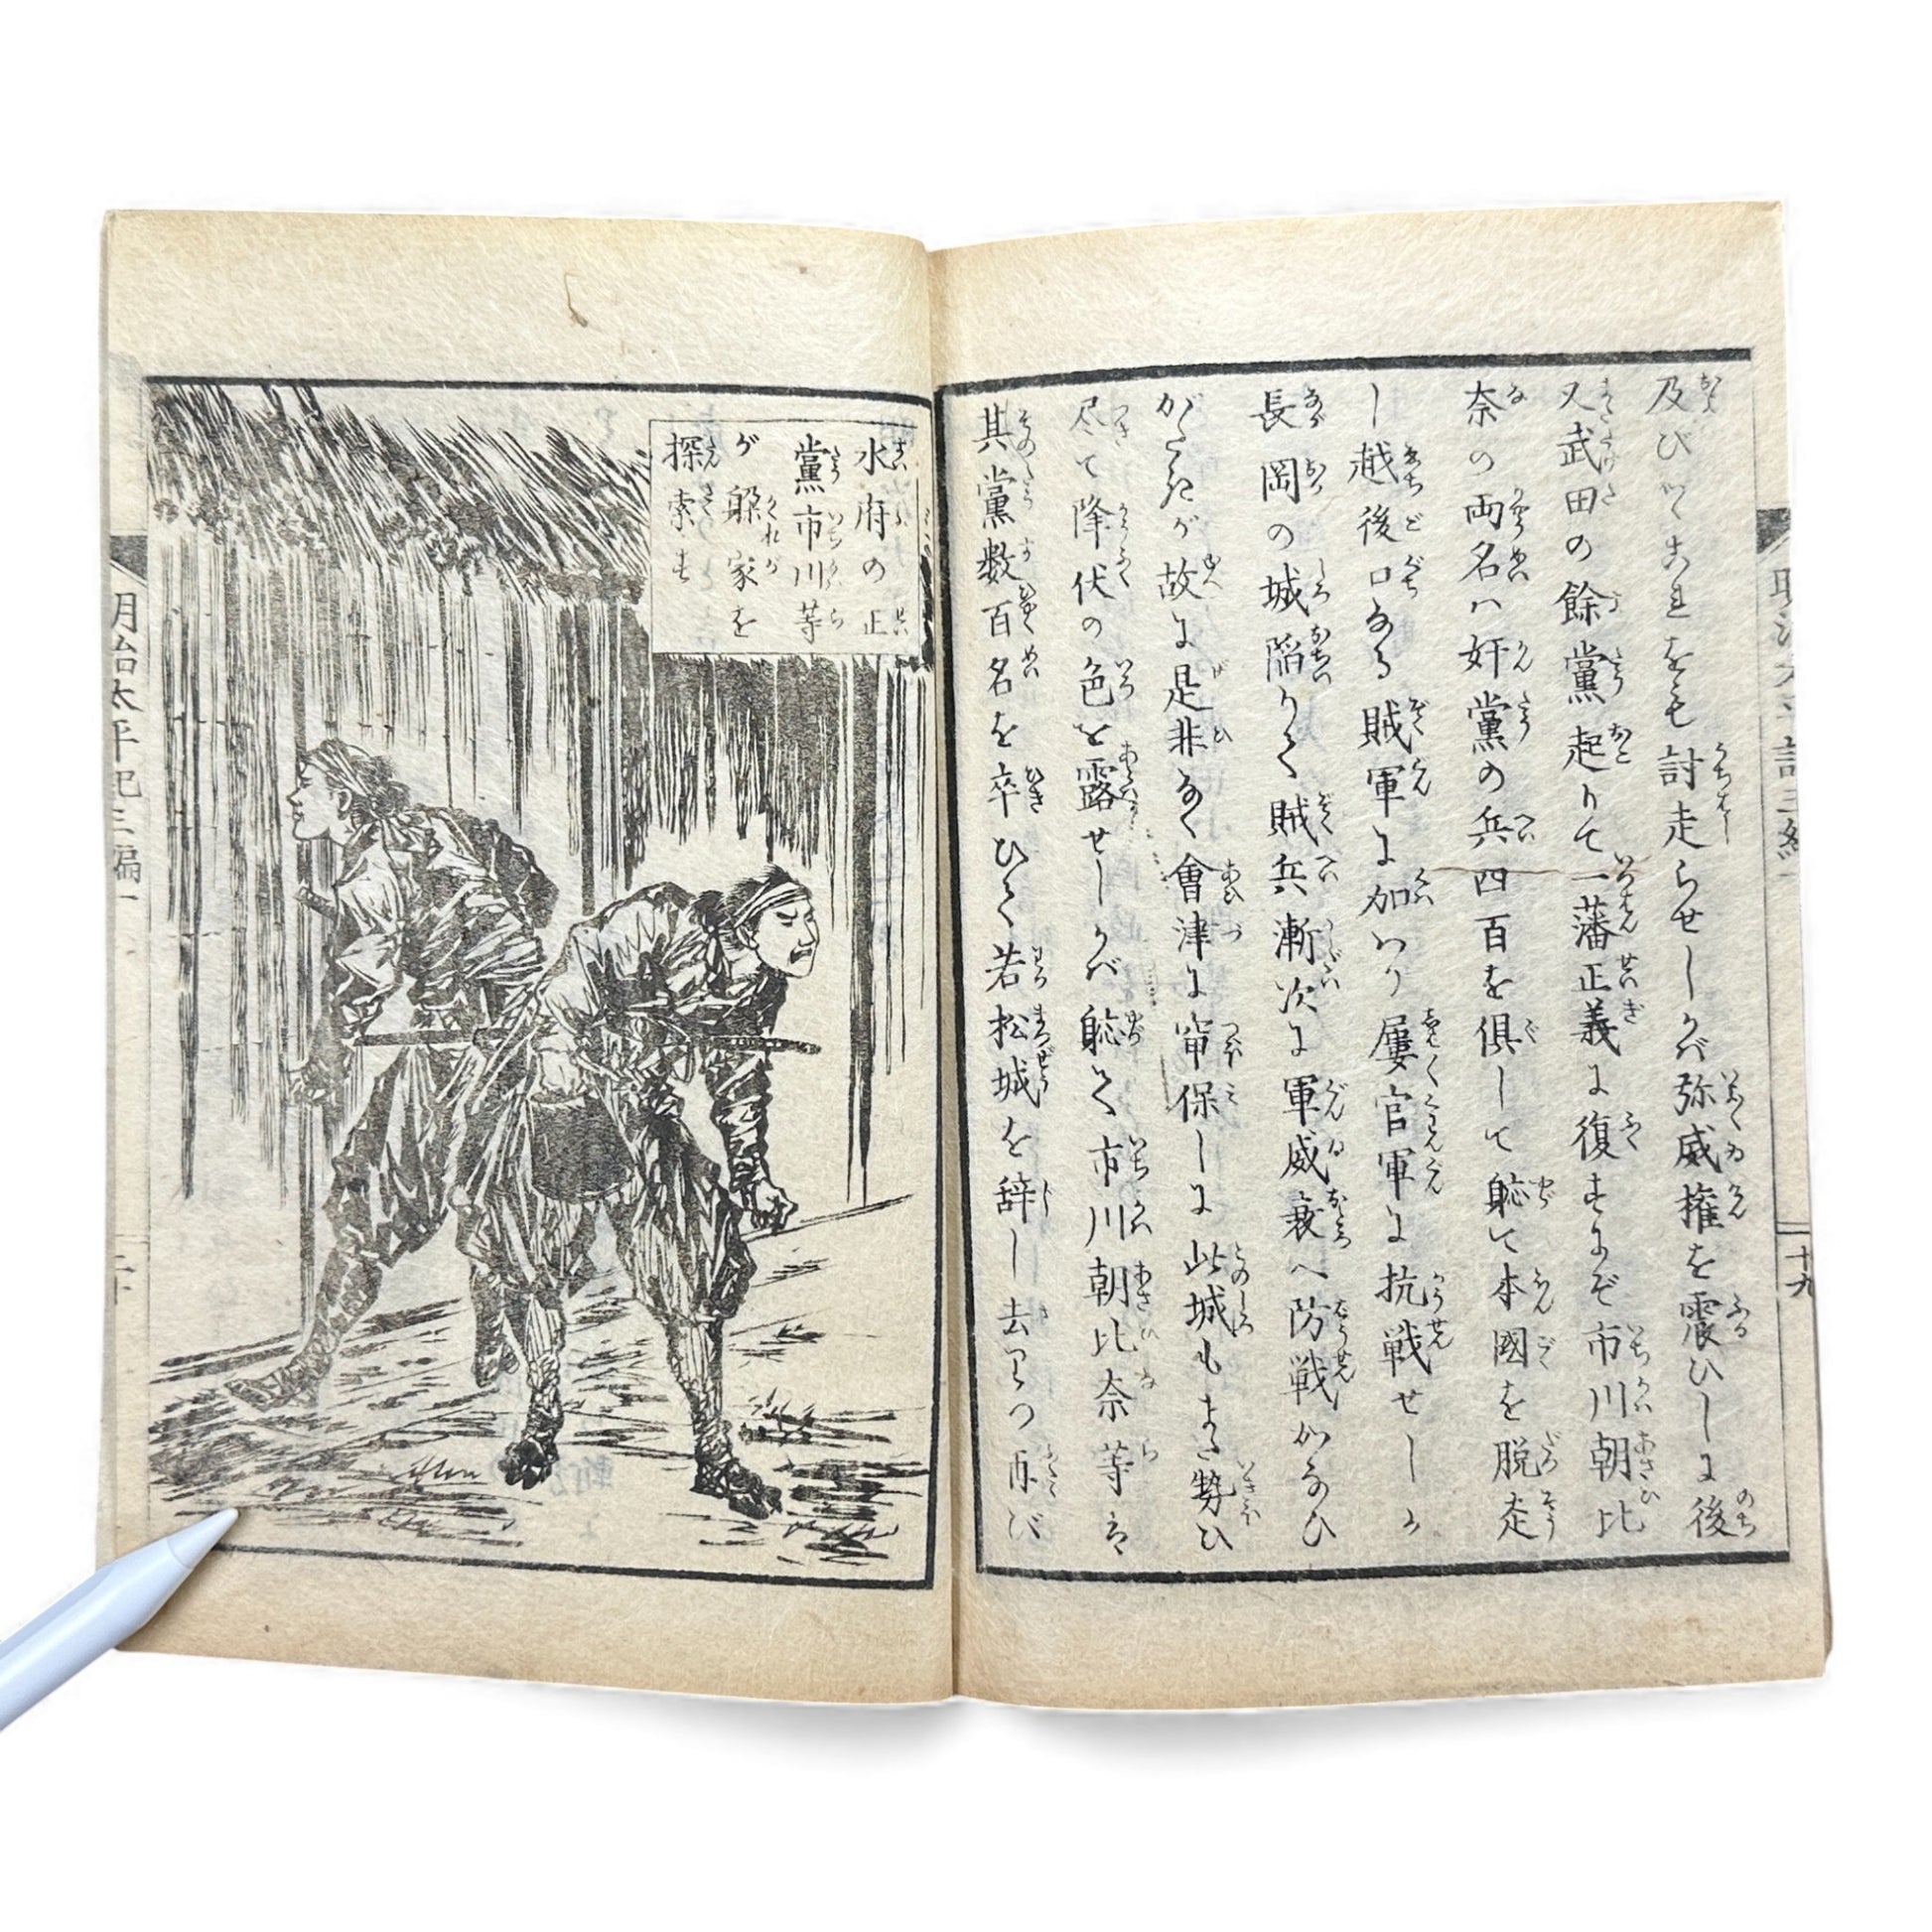 及びてこれをも討走らせしかバ弥威権を震ひしに後
又武田の餘黨起りて一藩正義に復すにぞ市川朝比
奈の両名ハ奸黨の兵四百を倶して恥て本國を脱走
し越後口なる賊軍に加ハり屡官軍に抗戦せしか
長岡の城陥りて賊兵漸次に軍威衰へ防戦かなひ
がたきが故に是非なく會津に窜保しに此城もまた勢ひ
尽て降伏の色を露せしかバ恥て市川朝比奈等ハ
其黨数百名を卒ひて若松城を辞し去りつ再び
水府の正
黨市川等
が躱家を
探索す
明治太平記三編一
十九